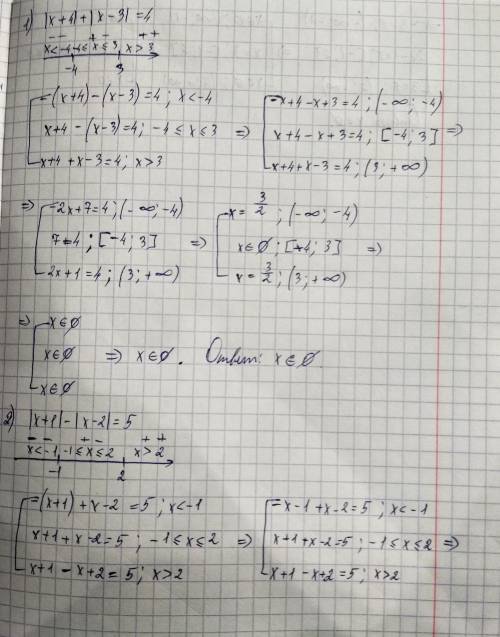 1) |x+4|+|x-3|=4
- - + - + +
x<-4 -4≤x≤3 x>3
-4 3
-(x+4)-(x-3)=4; x<-4 -x+4-x+3=4; (-∞; -4)
x+4-(x-3)=4; -4≤x≤3 => x+4-x+3=4; [-4; 3] =>
x+4+x-3=4; x>3 x+4+x-3=4; (3; +∞)
=> -2x+7=4; (-∞; -4) x=3/2; (-∞; -4)
7=4; [-4; 3] => x∈∅; [-4; 3] =>
2x+1=4; (3; +∞) x=3/2; (3; +∞)
=> x∈∅
x∈∅ => x∈∅. Ответ: x∈∅
x∈∅
2) |x+1|-|x-2|=5
- - + - + +
x<-1 -1≤x≤2 x>2
-1 2
-(x+1)+x-2=5; x<-1 -x-1+x-2=5; x<-1
x+1+x-2=5; -1≤x≤2 => x+1+x-2=5; -1≤x≤2 =>
x+1-x+2=5; x>2 x+1-x+2=5; x>2